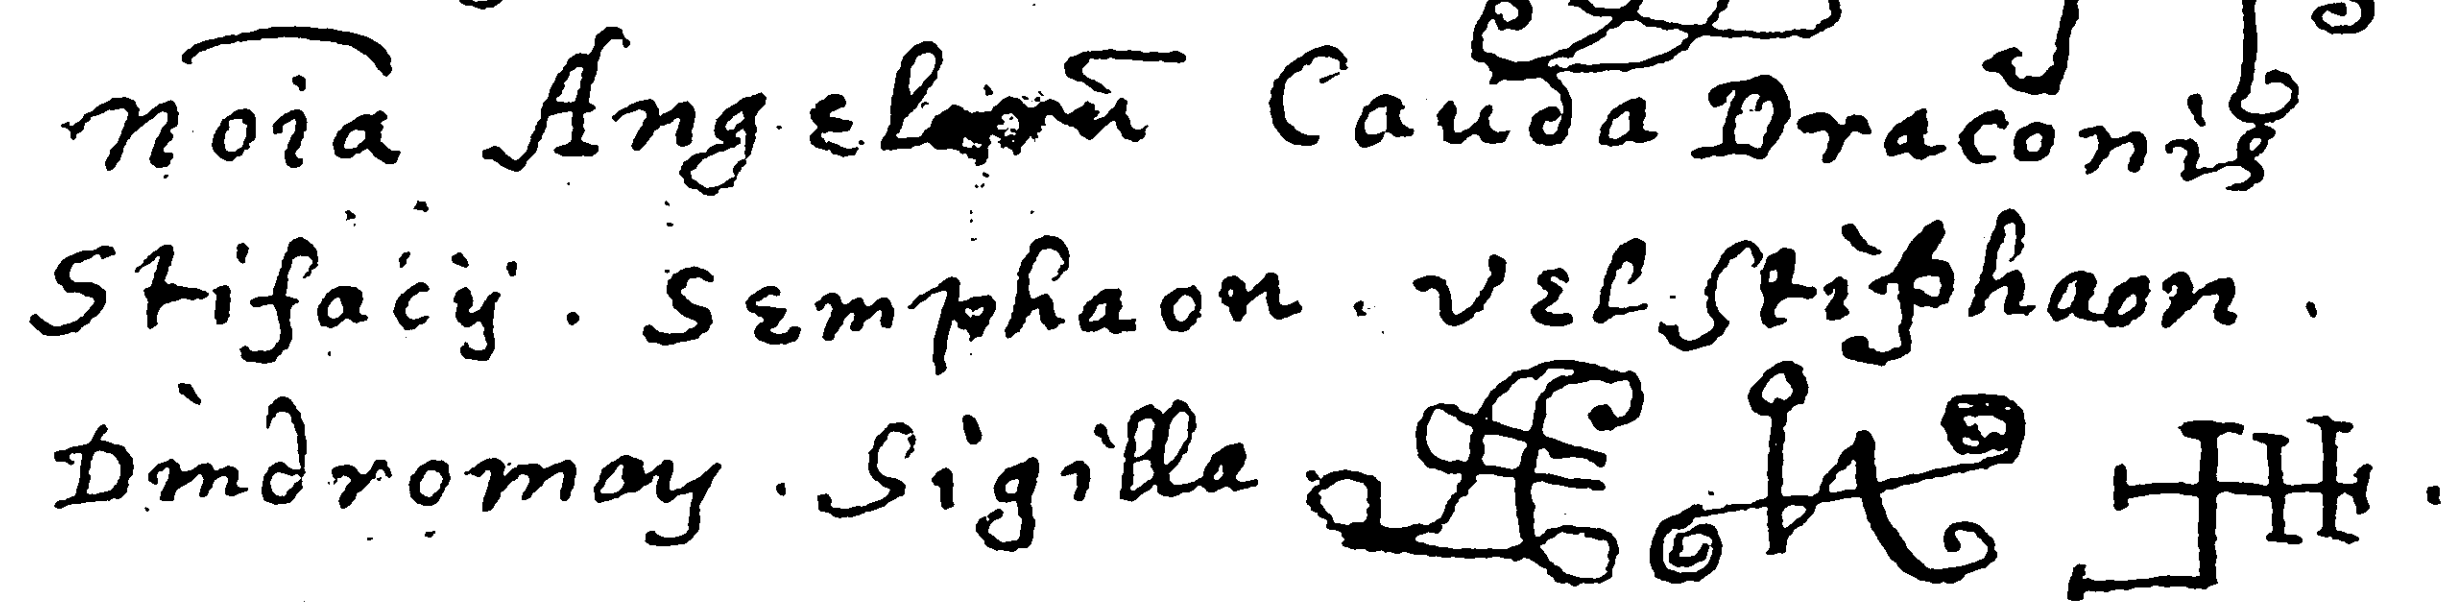 noīa Angelorū Cauda Draconis
Stifacÿ. Semphaon. vel Stiphaon.
Dindromay. Sigilla